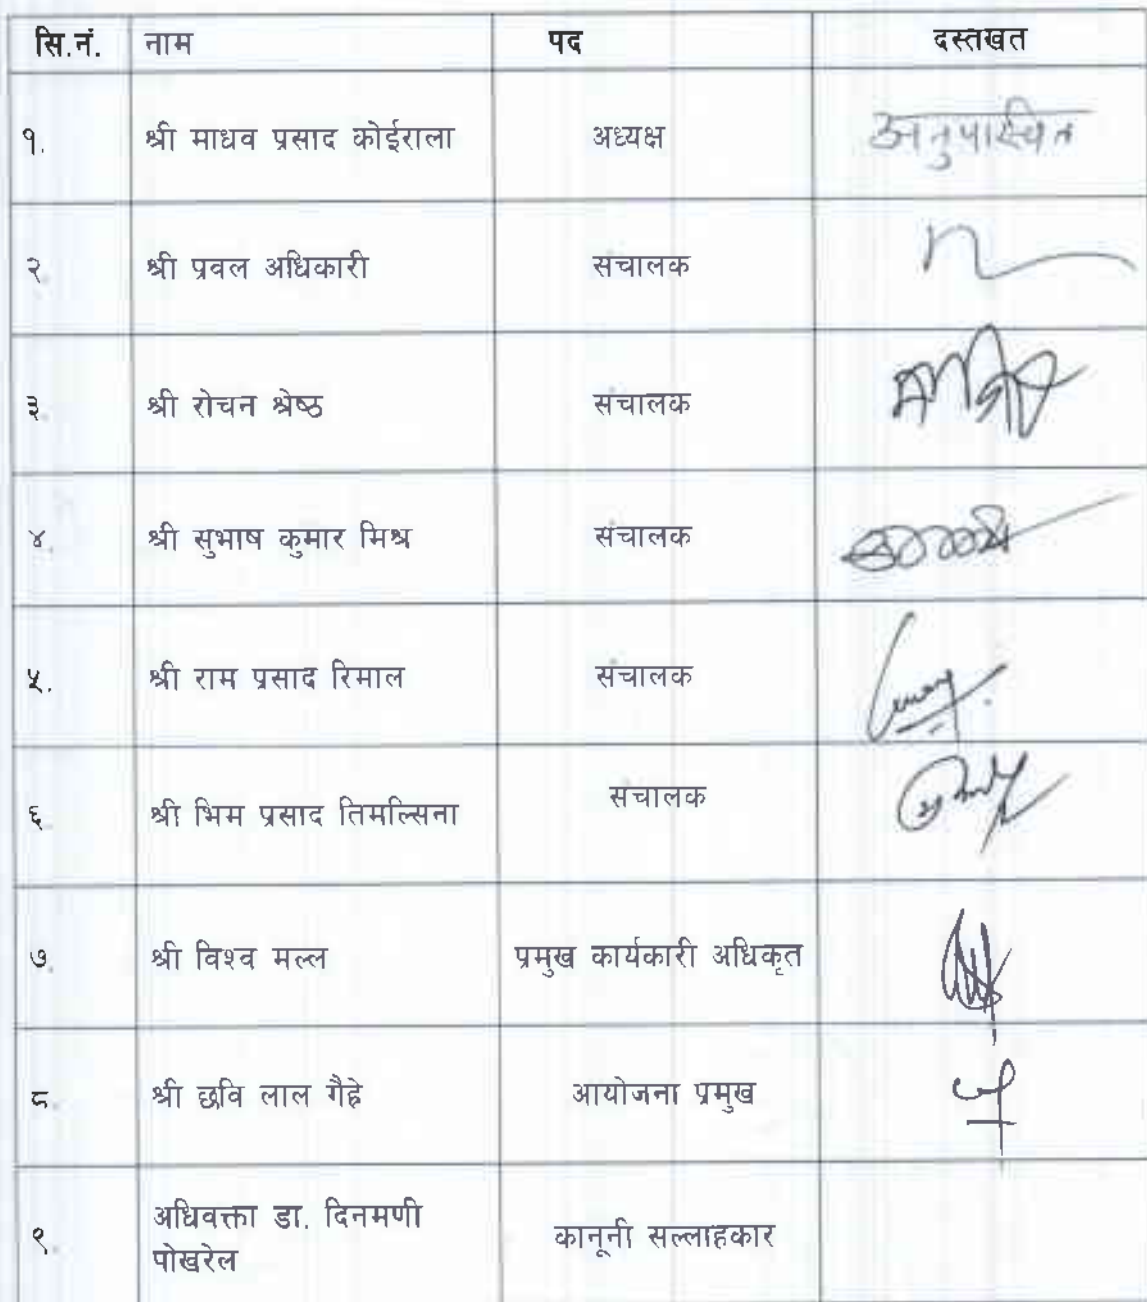 सि.नं. नाम पद दस्तखत
१. श्री माधव प्रसाद कोईराला अध्यक्ष अनुपस्थित
२. श्री प्रवल अधिकारी संचालक
३. श्री रोचन श्रेष्ठ संचालक
४. श्री सुभाष कुमार मिश्र संचालक
५. श्री राम प्रसाद रिमाल संचालक
६. श्री भिम प्रसाद तिमल्सिना संचालक
७. श्री विश्व मल्ल प्रमुख कार्यकारी अधिकृत
८. श्री छवि लाल गैह्रे आयोजना प्रमुख
९. अधिवक्ता डा. दिनमणी
पोखरेल कानूनी सल्लाहकार